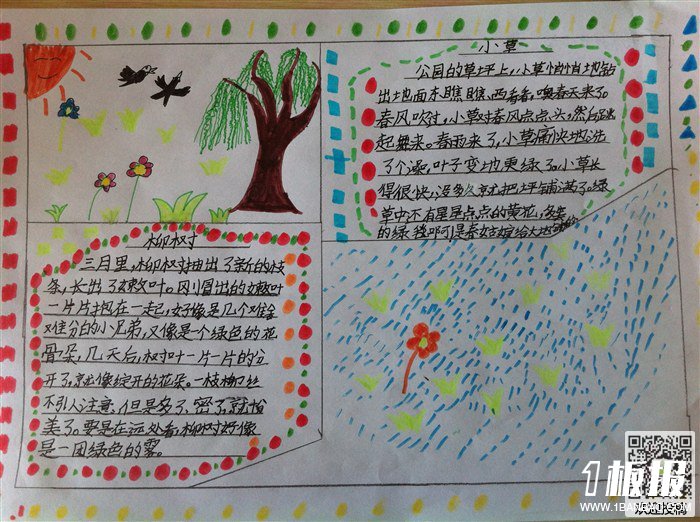 小草
公园的草坪上,小草悄悄地钻
出地面东瞧瞧、西看看,噢春天来了。
春风吹过,小草对春风点点头,然后跳
起舞来。春雨来了,小草痛快地洗
了个澡,叶子变地更绿了。小草长
得很快,没多久就把坪铺满了。绿
草中不有星星点点的黄花,
的绿
柳树
三月里,柳树抽出了新的枝
条,长出了嫩叶。刚冒出的嫩叶
一片片抱在一起,好像是几个难舍
难分的小兄弟,又像是个绿色的花
骨朵,几天后,树叶一片一片的分
开了,就像绽开的花朵。一枝柳丝
不引人注意,但是多了、密了,就怡
美了。要是在远处看,柳树好像
是一团绿色的雾。
1板报
WWW.1BANBAO.COM
欢迎投稿